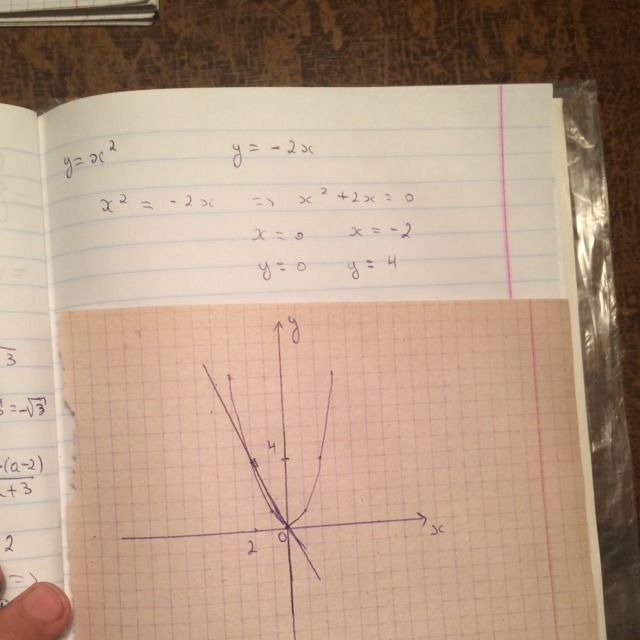 y = x² y = -2x
x² = -2x => x² + 2x = 0
x = 0 x = -2
y = 0 y = 4
y
4
2 0 x
3
= -√3
(a-2)
x+3
2
=>